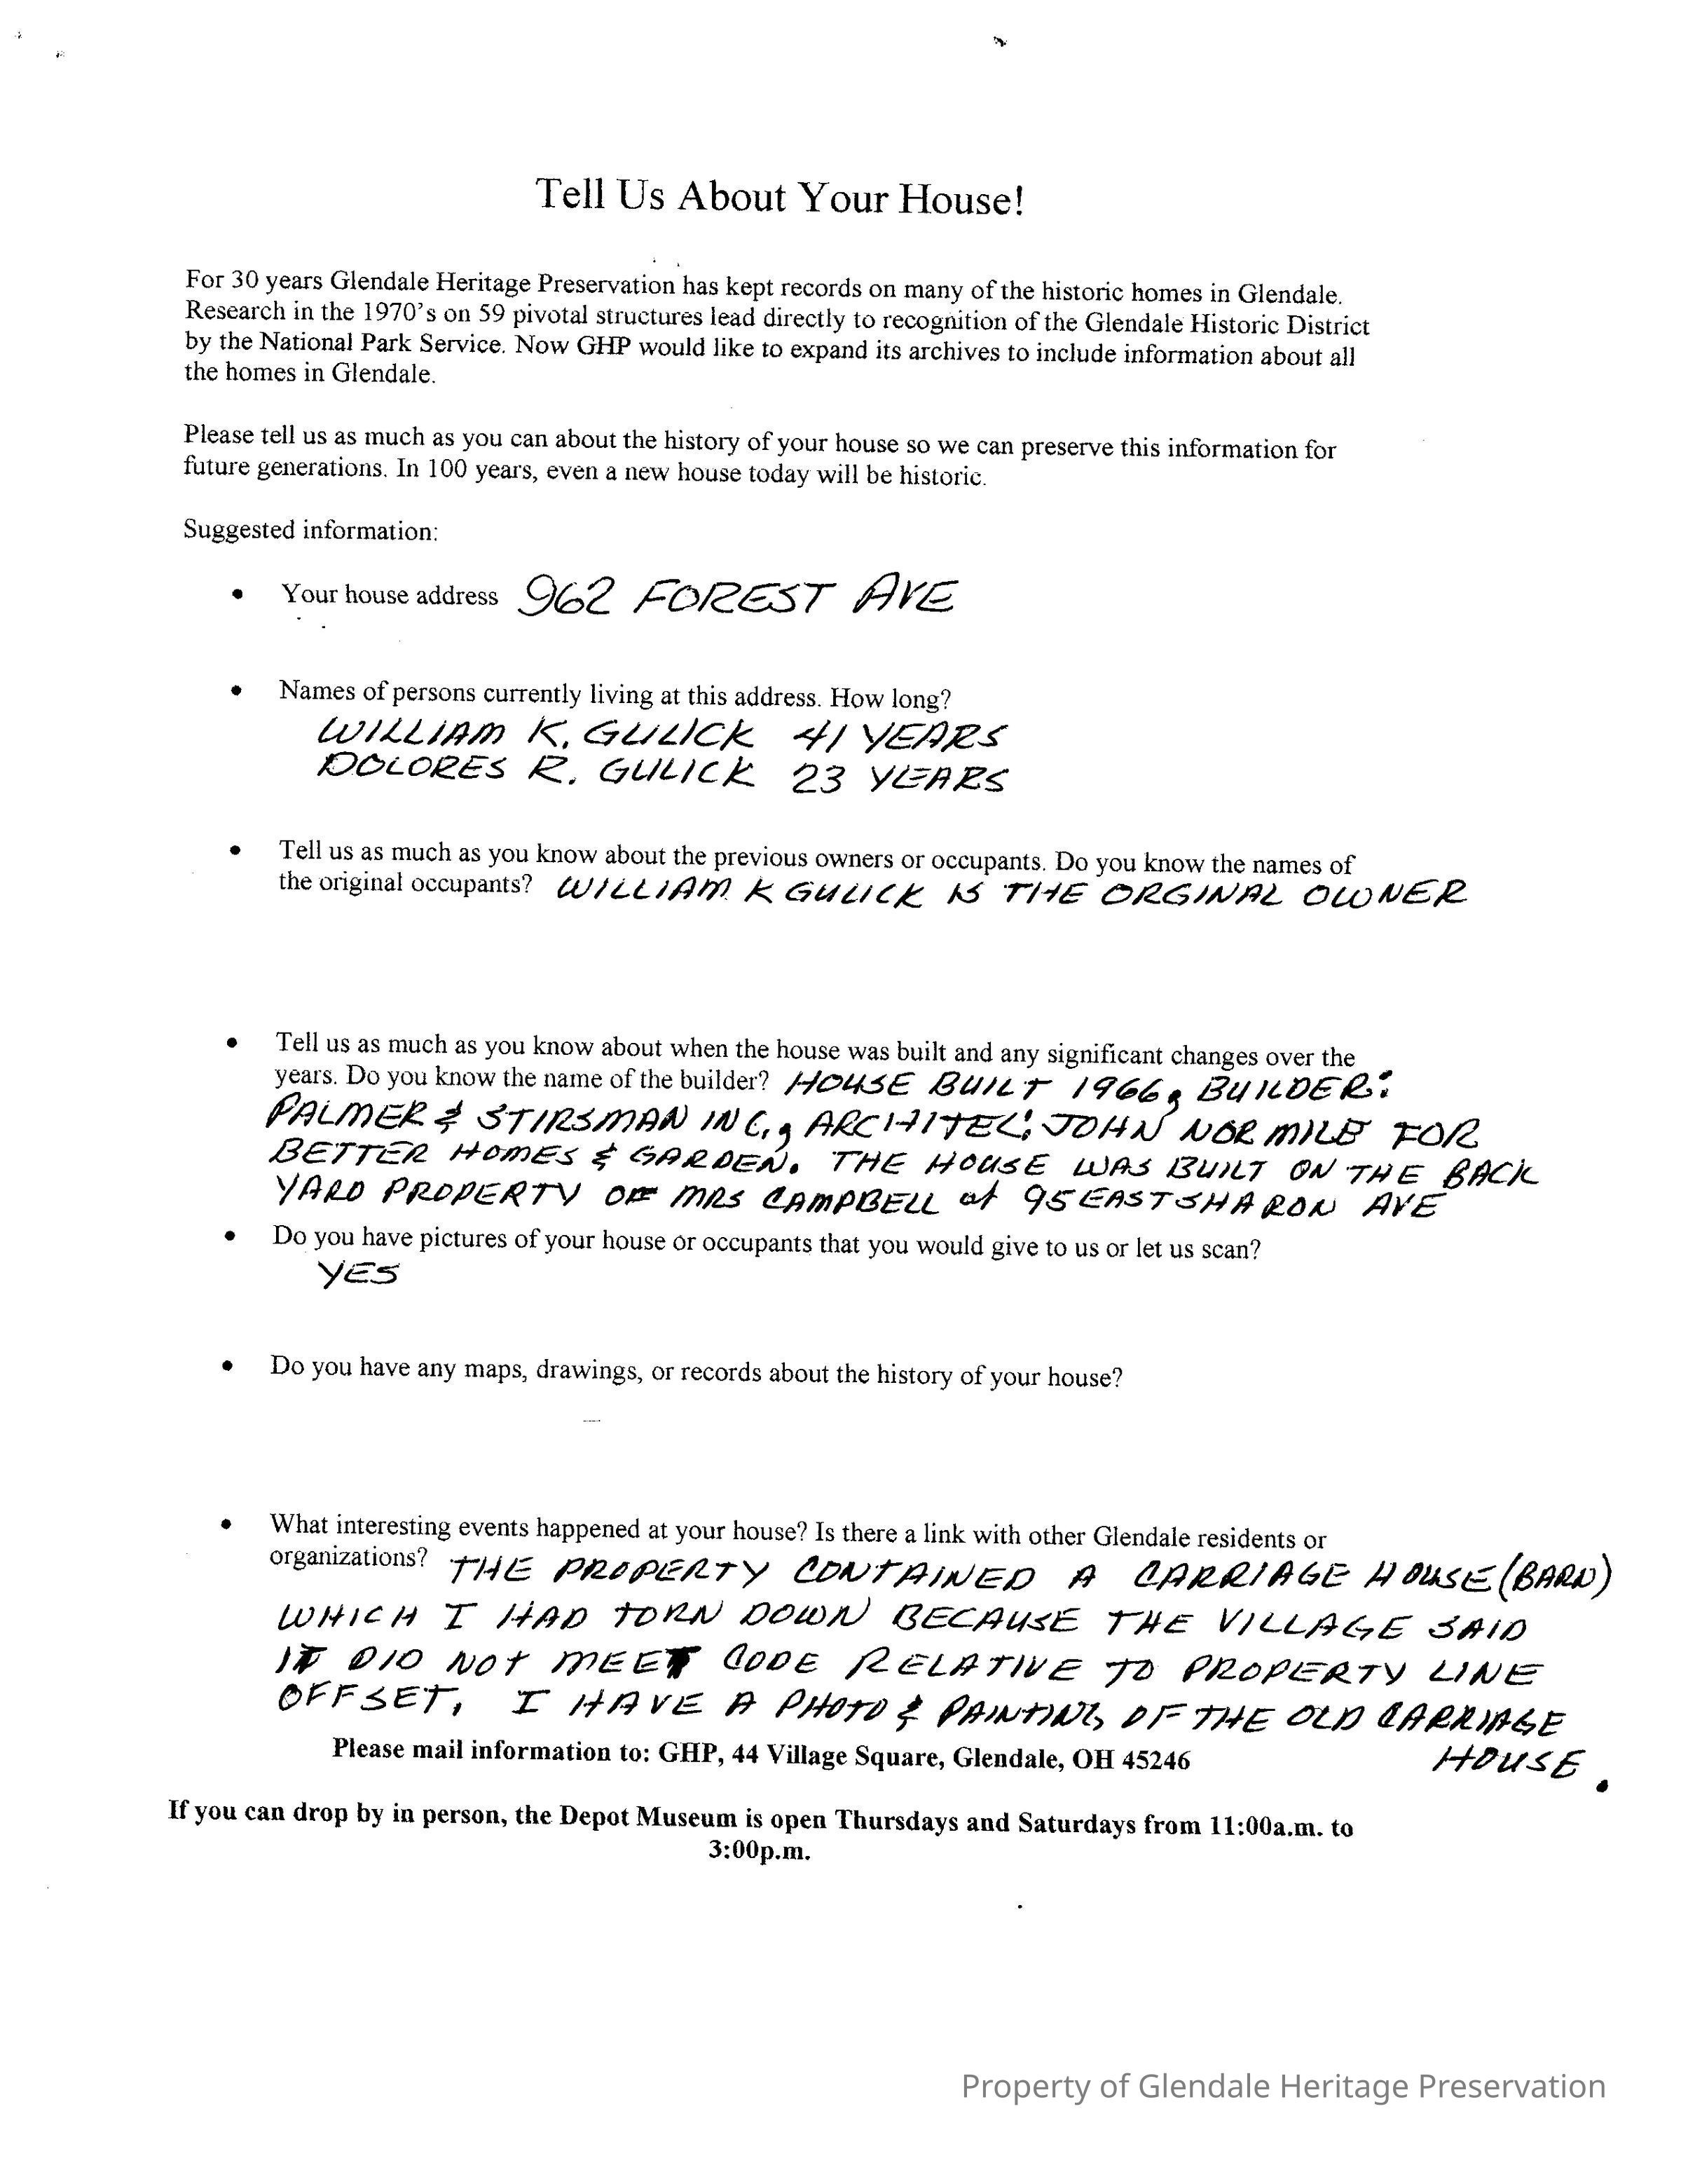 Tell Us About Your House!
For 30 years Glendale Heritage Preservation has kept records on many of the historic homes in Glendale.
Research in the 1970's on 59 pivotal structures lead directly to recognition of the Glendale Historic District
by the National Park Service. Now GHP would like to expand its archives to include information about all
the homes in Glendale.
Please tell us as much as you can about the history of your house so we can preserve this information for
future generations. In 100 years, even a new house today will be historic.
Suggested information:
• Your house address 962 FOREST AVE
• Names of persons currently living at this address. How long?
WILLIAM K. GULICK 41 YEARS
DOLORES R. GULICK 23 YEARS
• Tell us as much as you know about the previous owners or occupants. Do you know the names of
the original occupants? WILLIAM K GULICK IS THE ORGINAL OWNER
• Tell us as much as you know about when the house was built and any significant changes over the
years. Do you know the name of the builder? HOUSE BUILT 1966, BUILDER:
PALMER & STIRSMAN INC., ARCHITEC: JOHN NORMILE FOR
BETTER HOMES & GARDEN. THE HOUSE WAS BUILT ON THE BACK
YARD PROPERTY OF MRS CAMPBELL at 95 EAST SHARON AVE
• Do you have pictures of your house or occupants that you would give to us or let us scan?
YES
• Do you have any maps, drawings, or records about the history of your house?
• What interesting events happened at your house? Is there a link with other Glendale residents or
organizations? THE PROPERTY CONTAINED A CARRIAGE HOUSE (BARN)
WHICH I HAD TORN DOWN BECAUSE THE VILLAGE SAID
IT DID NOT MEET CODE RELATIVE TO PROPERTY LINE
OFFSET, I HAVE A PHOTO & PAINTING OF THE OLD CARRIAGE
HOUSE.
Please mail information to: GHP, 44 Village Square, Glendale, OH 45246
If you can drop by in person, the Depot Museum is open Thursdays and Saturdays from 11:00a.m. to
3:00p.m.
Property of Glendale Heritage Preservation